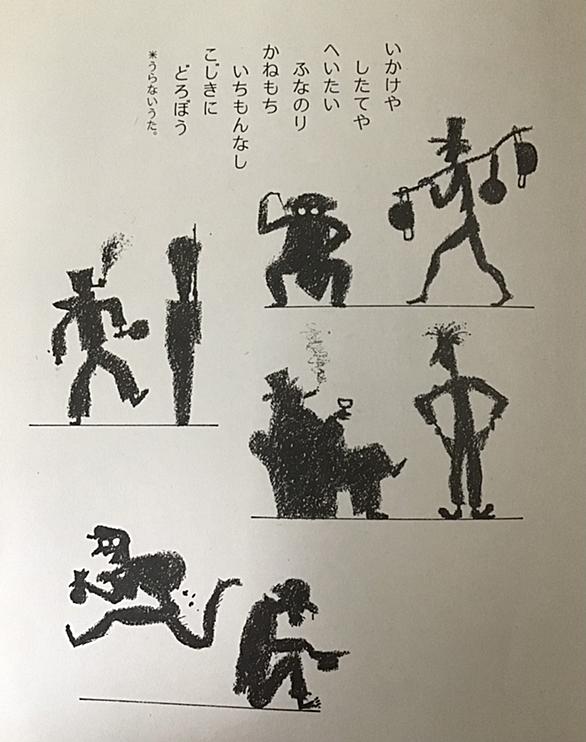 いかけや
したてや
へいたい
ふなのり
かねもち
いちもんなし
こじきに
どろぼう
＊うらないうた。